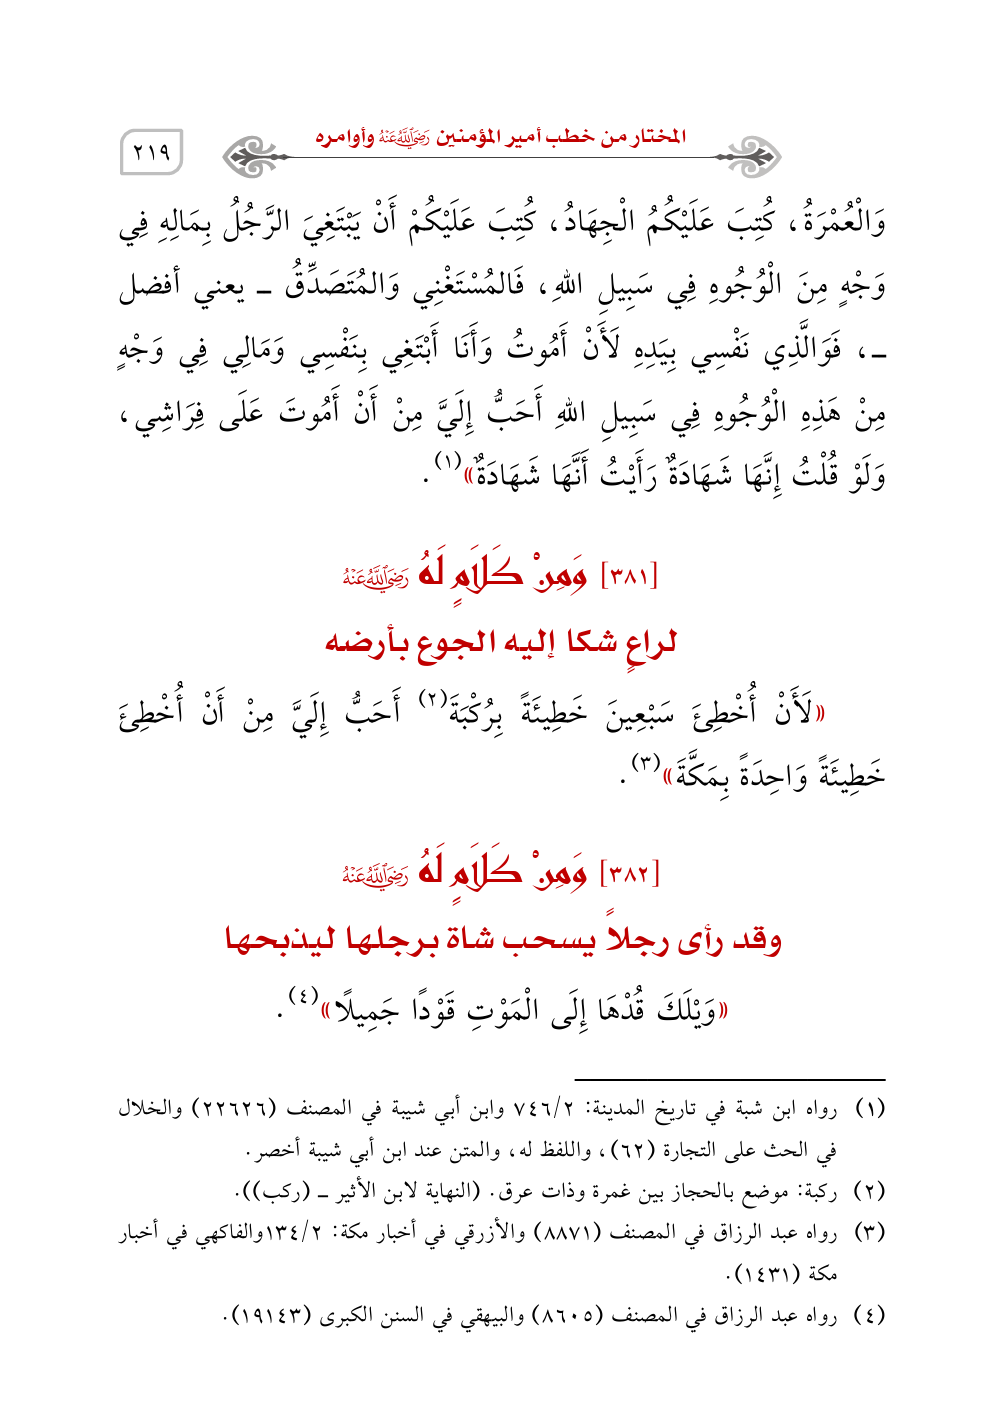 المختار من خطب أمير المؤمنين رَضِيَ اللَّهُ عَنْهُ وأوامره
٢١٩
وَالْعُمْرَةُ، كُتِبَ عَلَيْكُمُ الْجِهَادُ، كُتِبَ عَلَيْكُمْ أَنْ يَبْتَغِيَ الرَّجُلُ بِمَالِهِ فِي
وَجْهٍ مِنَ الْوُجُوهِ فِي سَبِيلِ اللهِ، فَالمُسْتَغْنِي وَالمُتَصَدِّقُ ـ يعني أفضل
ـ، فَوَالَّذِي نَفْسِي بِيَدِهِ لَأَنْ أَمُوتُ وَأَنَا أَبْتَغِي بِنَفْسِي وَمَالِي فِي وَجْهٍ
مِنْ هَذِهِ الْوُجُوهِ فِي سَبِيلِ اللهِ أَحَبُّ إِلَيَّ مِنْ أَنْ أَمُوتَ عَلَى فِرَاشِي،
وَلَوْ قُلْتُ إِنَّهَا شَهَادَةٌ رَأَيْتُ أَنَّهَا شَهَادَةٌ»(١).
[٣٨١] وَمِنْ كَلَامٍ لَهُ رَضِيَ اللَّهُ عَنْهُ
لراعٍ شكا إليه الجوع بأرضه
«لَأَنْ أُخْطِئَ سَبْعِينَ خَطِيئَةً بِرُكْبَةَ(٢) أَحَبُّ إِلَيَّ مِنْ أَنْ أُخْطِئَ
خَطِيئَةً وَاحِدَةً بِمَكَّةَ»(٣).
[٣٨٢] وَمِنْ كَلَامٍ لَهُ رَضِيَ اللَّهُ عَنْهُ
وقد رأى رجلاً يسحب شاة برجلها ليذبحها
«وَيْلَكَ قُدْهَا إِلَى الْمَوْتِ قَوْدًا جَمِيلًا»(٤).
(١) رواه ابن شبة في تاريخ المدينة: ٧٤٦/٢ وابن أبي شيبة في المصنف (٢٢٦٢٦) والخلال
في الحث على التجارة (٦٢)، واللفظ له، والمتن عند ابن أبي شيبة أخصر.
(٢) ركبة: موضع بالحجاز بين غمرة وذات عرق. (النهاية لابن الأثير ـ (ركب)).
(٣) رواه عبد الرزاق في المصنف (٨٨٧١) والأزرقي في أخبار مكة: ١٣٤/٢والفاكهي في أخبار
مكة (١٤٣١).
(٤) رواه عبد الرزاق في المصنف (٨٦٠٥) والبيهقي في السنن الكبرى (١٩١٤٣).